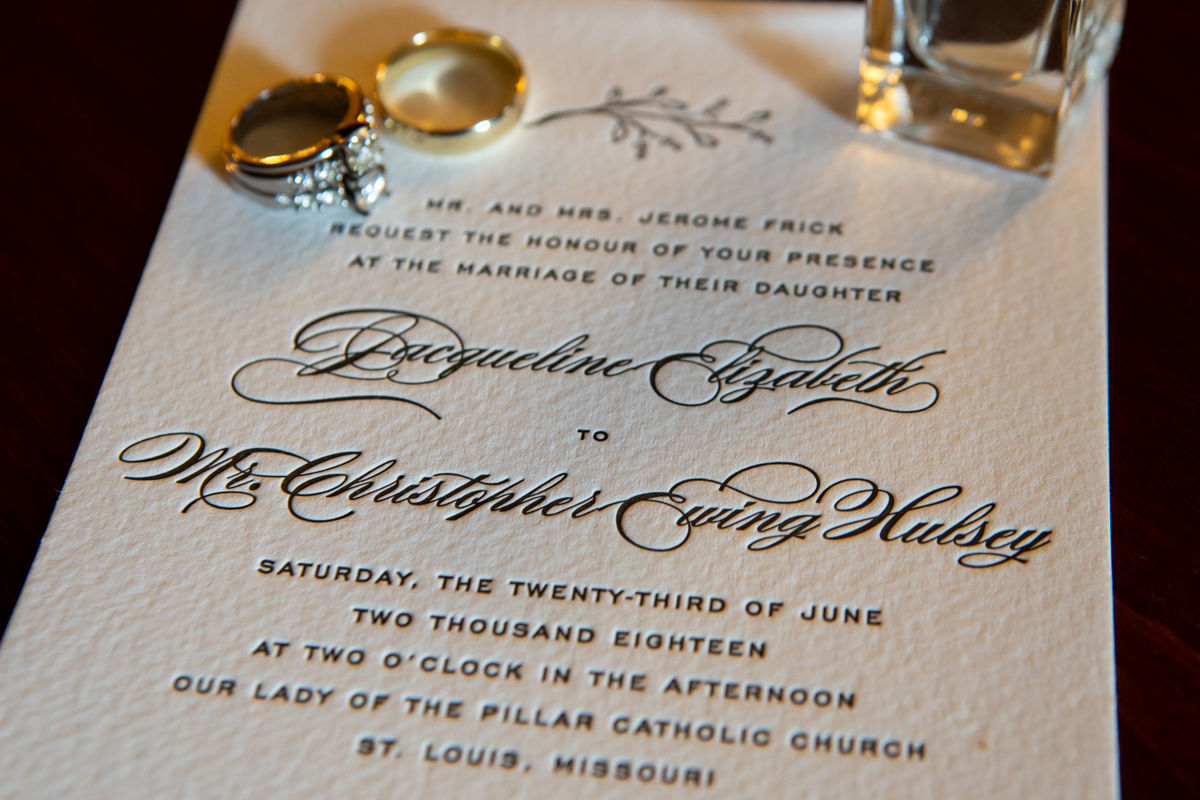 MR. AND MRS. JEROME FRICK
REQUEST THE HONOUR OF YOUR PRESENCE
AT THE MARRIAGE OF THEIR DAUGHTER
Jacqueline Elizabeth
TO
Mr. Christopher Ewing Hulsey
SATURDAY, THE TWENTY-THIRD OF JUNE
TWO THOUSAND EIGHTEEN
AT TWO O'CLOCK IN THE AFTERNOON
OUR LADY OF THE PILLAR CATHOLIC CHURCH
ST. LOUIS, MISSOURI